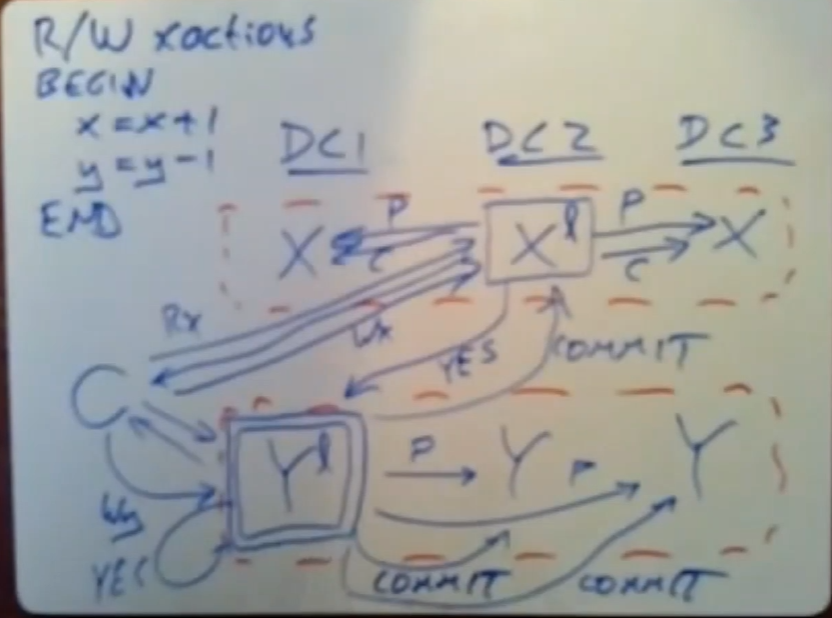 R/W xactions
BEGIN
x = x + 1
y = y - 1
END
DC1 DC2 DC3
P P
X X l X
C C
Rx
Wx
YES COMMIT
C
Y l P Y P Y
Wy
YES COMMIT COMMIT